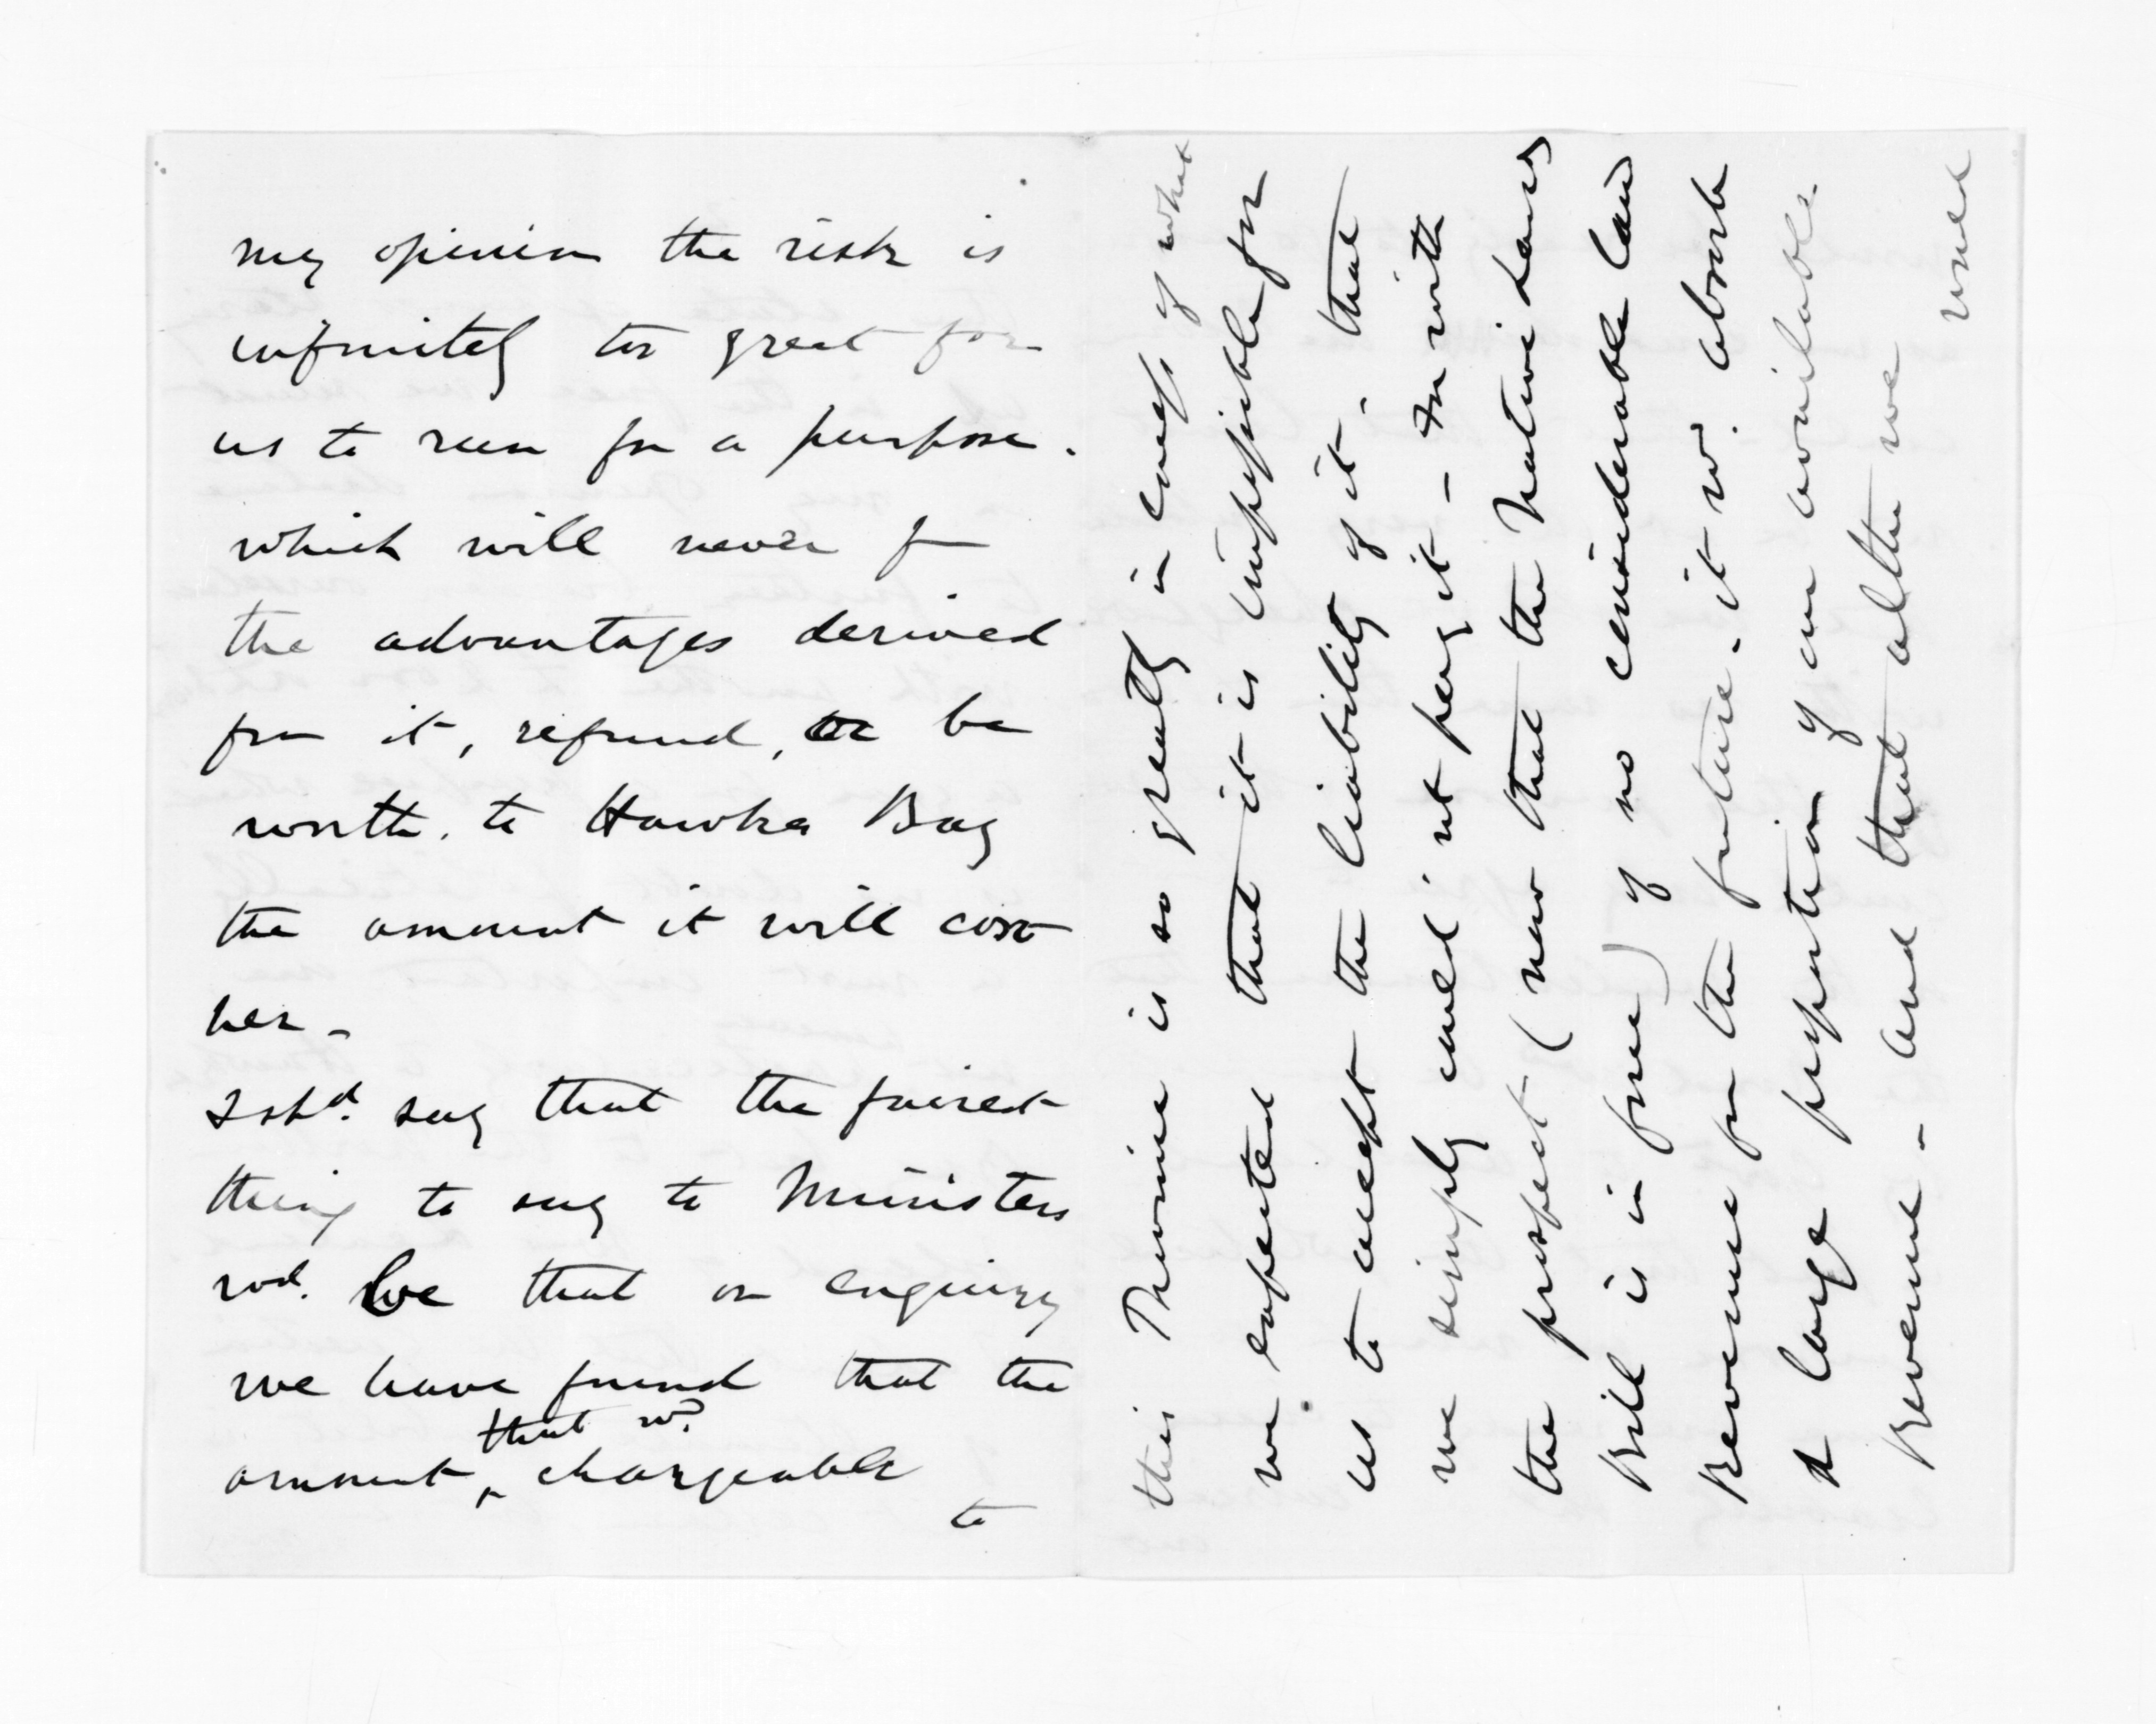 my opinion the risk is
infinitely too great for
us to run for a purpose.
which will never for
the advantages derived
from it, refund, or be
worth, to Hawkes Bay
the amount it will cost
her -
I shd. say that the fairest
thing to say to Ministers
wd. be that on enquiry
we have found that the
that wd.
amount, chargeable
to
this Province is so greatly in excess of what
we expected that it is impossible for
us to accept the liability of it - that
we simply could not pay it - In with
the prospect (now that the Native Lands
Bill is in force) of no considerable Land
Revenue for the future - it wd. absorb
a large proportion of our available
Revenue - and that altho we